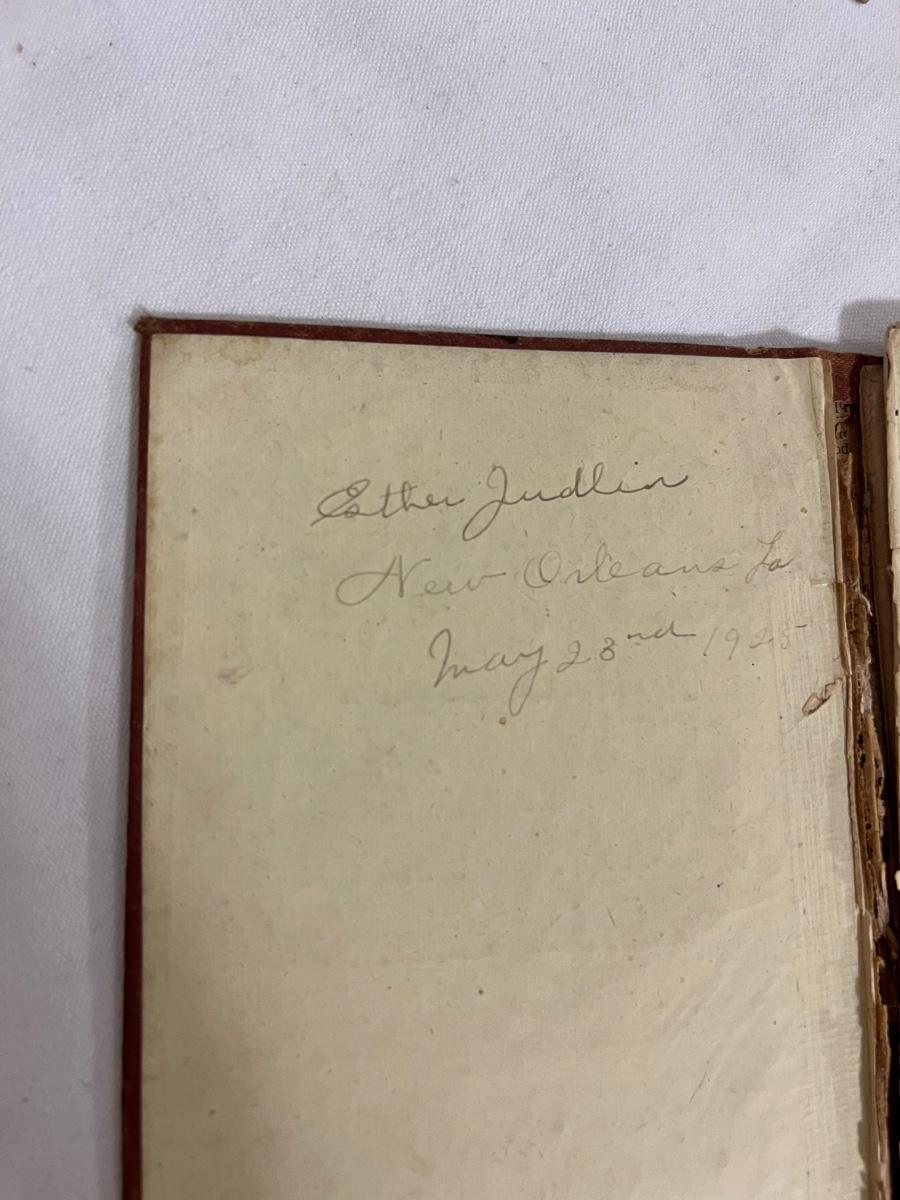 Esther Judlin
New Orleans La
May 23nd 1925